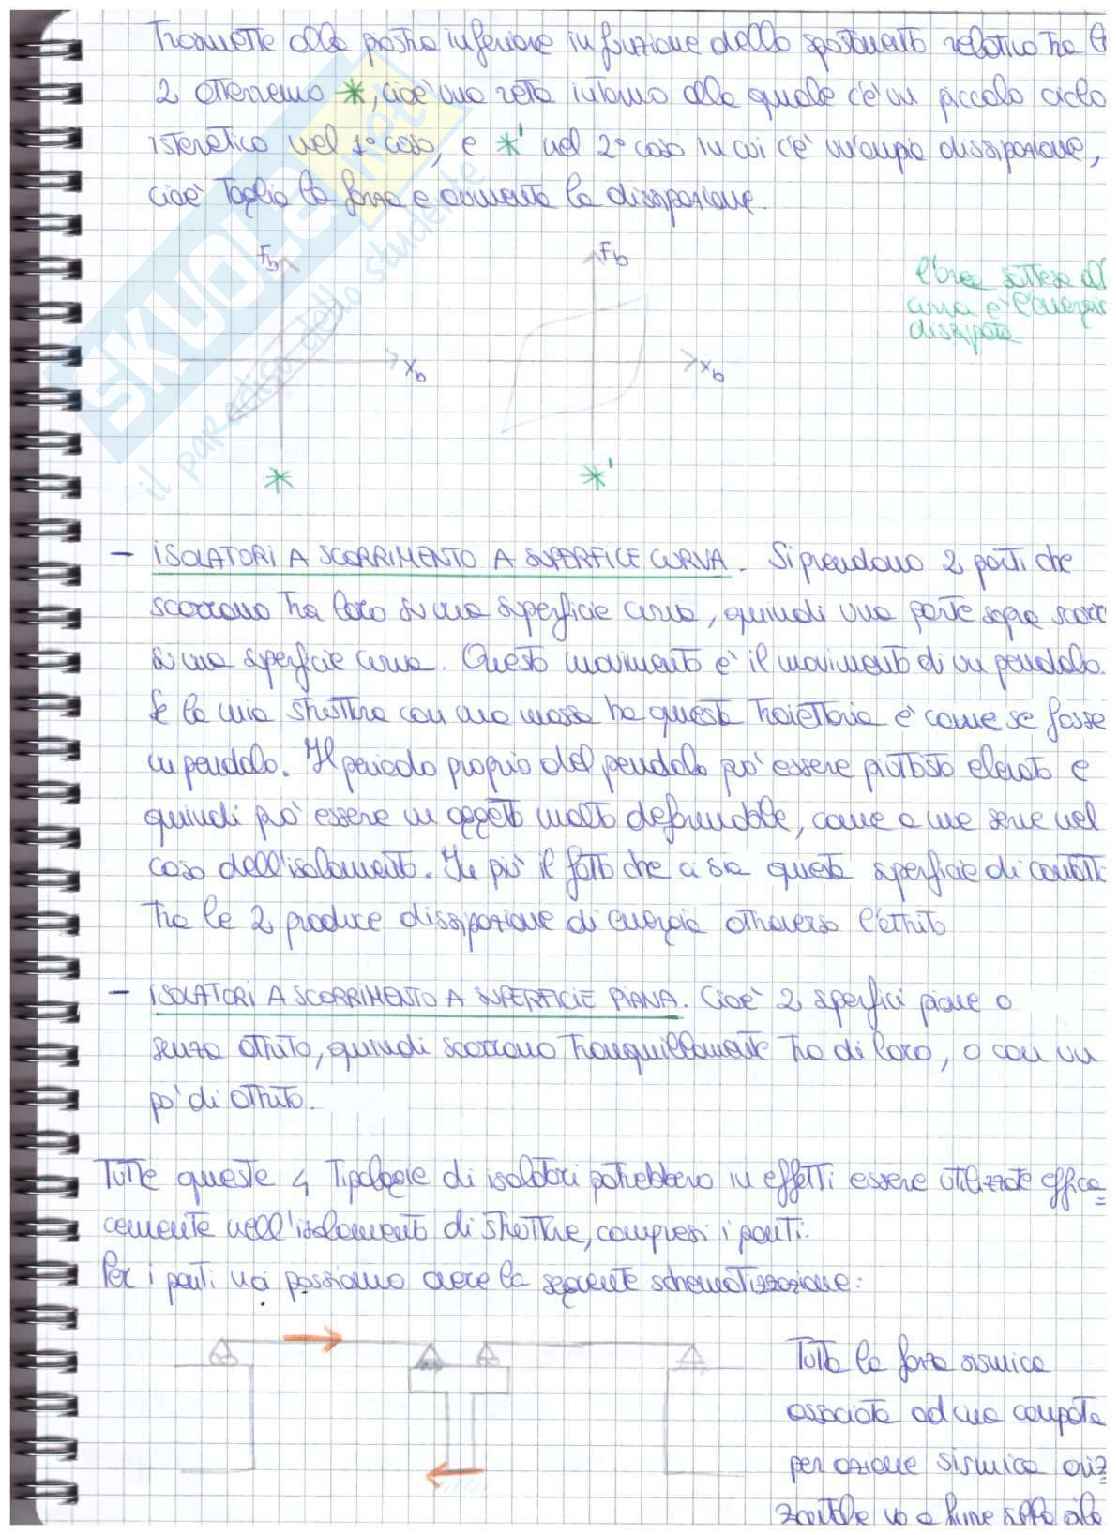 Trasmette alla piastra inferiore in funzione dello spostamento relativo tra le
2 otteniamo *, cioè una retta intorno alla quale c'è un piccolo ciclo
isteretico nel 1° caso, e *' nel 2° caso in cui c'è un'ampia dissipazione,
cioè taglia la forza e aumenta la dissipazione.
Fb
Fb
l'area sottesa all
curva è l'energia
dissipata
xb
xb
*
*'
SKUOLA.net
il paradiso dello studente
- ISOLATORI A SCORRIMENTO A SUPERFICE CURVA. Si prendono 2 parti che
scorrono tra loro su una superficie curva, quindi una parte sopra scorre
su una superficie curva. Questo movimento è il movimento di un pendolo.
Se la mia struttura con una massa ha questa traiettoria è come se fosse
un pendolo. Il periodo proprio del pendolo può essere piuttosto elevato e
quindi può essere un oggetto molto deformabile, come a me serve nel
caso dell'isolamento. In più il fatto che ci sia questa superficie di contatto
tra le 2 produce dissipazione di energia attraverso l'attrito
- ISOLATORI A SCORRIMENTO A SUPERFICIE PIANA. Cioè 2 superfici piane o
senza attrito, quindi scorrono tranquillamente tra di loro, o con un
po' di attrito.
Tutte queste 4 tipologie di isolatori potrebbero in effetti essere utilizzate effica=
cemente nell'isolamento di strutture, compresi i ponti.
Per i ponti noi possiamo avere la seguente schematizzazione:
Tutta la forza sismica
associata ad una campata
per azione sismica oriz=
zontale va a finire sotto alla